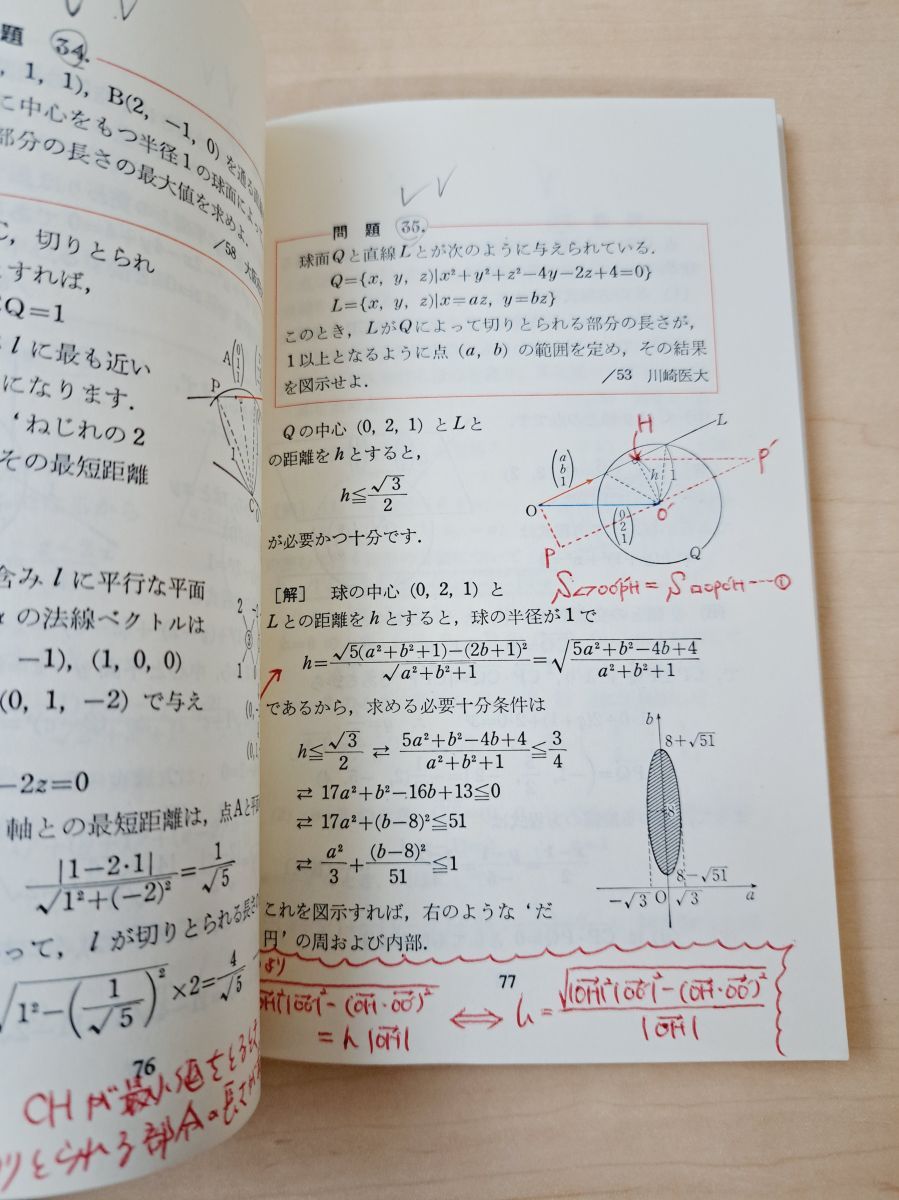 題 34.
, 1, 1), B(2, −1, 0) を通る直線
に中心をもつ半径1の球面によっ
部分の長さの最大値を求めよ.
/58
切りとられ
とすれば,
CQ=1
l に最も近い
になります.
‘ねじれの2
その最短距離
A
P
1
C
含み l に平行な平面
α の法線ベクトルは
−1), (1, 0, 0)
(0, 1, −2) で与え
−2z=0
軸との最短距離は, 点Aと平
|1−2・1| / √1²+(−2)² = 1/√5
って, l が切りとられる長さ
√1²−(1/√5)² ×2= 4/√5
76
CH が最小値をとるとは
りとられる部分の長さが
問題 35.
球面Qと直線Lとが次のように与えられている.
Q={x, y, z)|x²+y²+z²−4y−2z+4=0}
L={x, y, z)|x=az, y=bz}
このとき, LがQによって切りとられる部分の長さが,
1以上となるように点 (a, b) の範囲を定め, その結果
を図示せよ.
/53 川崎医大
Qの中心 (0, 2, 1) とLと
の距離をhとすると,
h≦√3/2
が必要かつ十分です.
H
L
P′
(a b 1)
h
1
O
O′
(0 2 1)
P
Q
S▱OO′P′H = S□OPO′H ……①
[解] 球の中心 (0, 2, 1) と
Lとの距離をhとすると, 球の半径が1で
h= √5(a²+b²+1)−(2b+1)² / √a²+b²+1 = √(5a²+b²−4b+4 / a²+b²+1)
であるから, 求める必要十分条件は
h≦√3/2 ⇄ 5a²+b²−4b+4 / a²+b²+1 ≦ 3/4
⇄ 17a²+b²−16b+13≦0
⇄ 17a²+(b−8)²≦51
⇄ a²/3 + (b−8)²/51 ≦1
b
8+√51
8
8−√51
−√3 O √3 a
これを図示すれば, 右のような ‘だ
円’ の周および内部.
より
77
|OH|²|OO′|²−(OH・OO′)²
= h|OH| ⟺ h = √|OH|²|OO′|²−(OH・OO′)² / |OH|